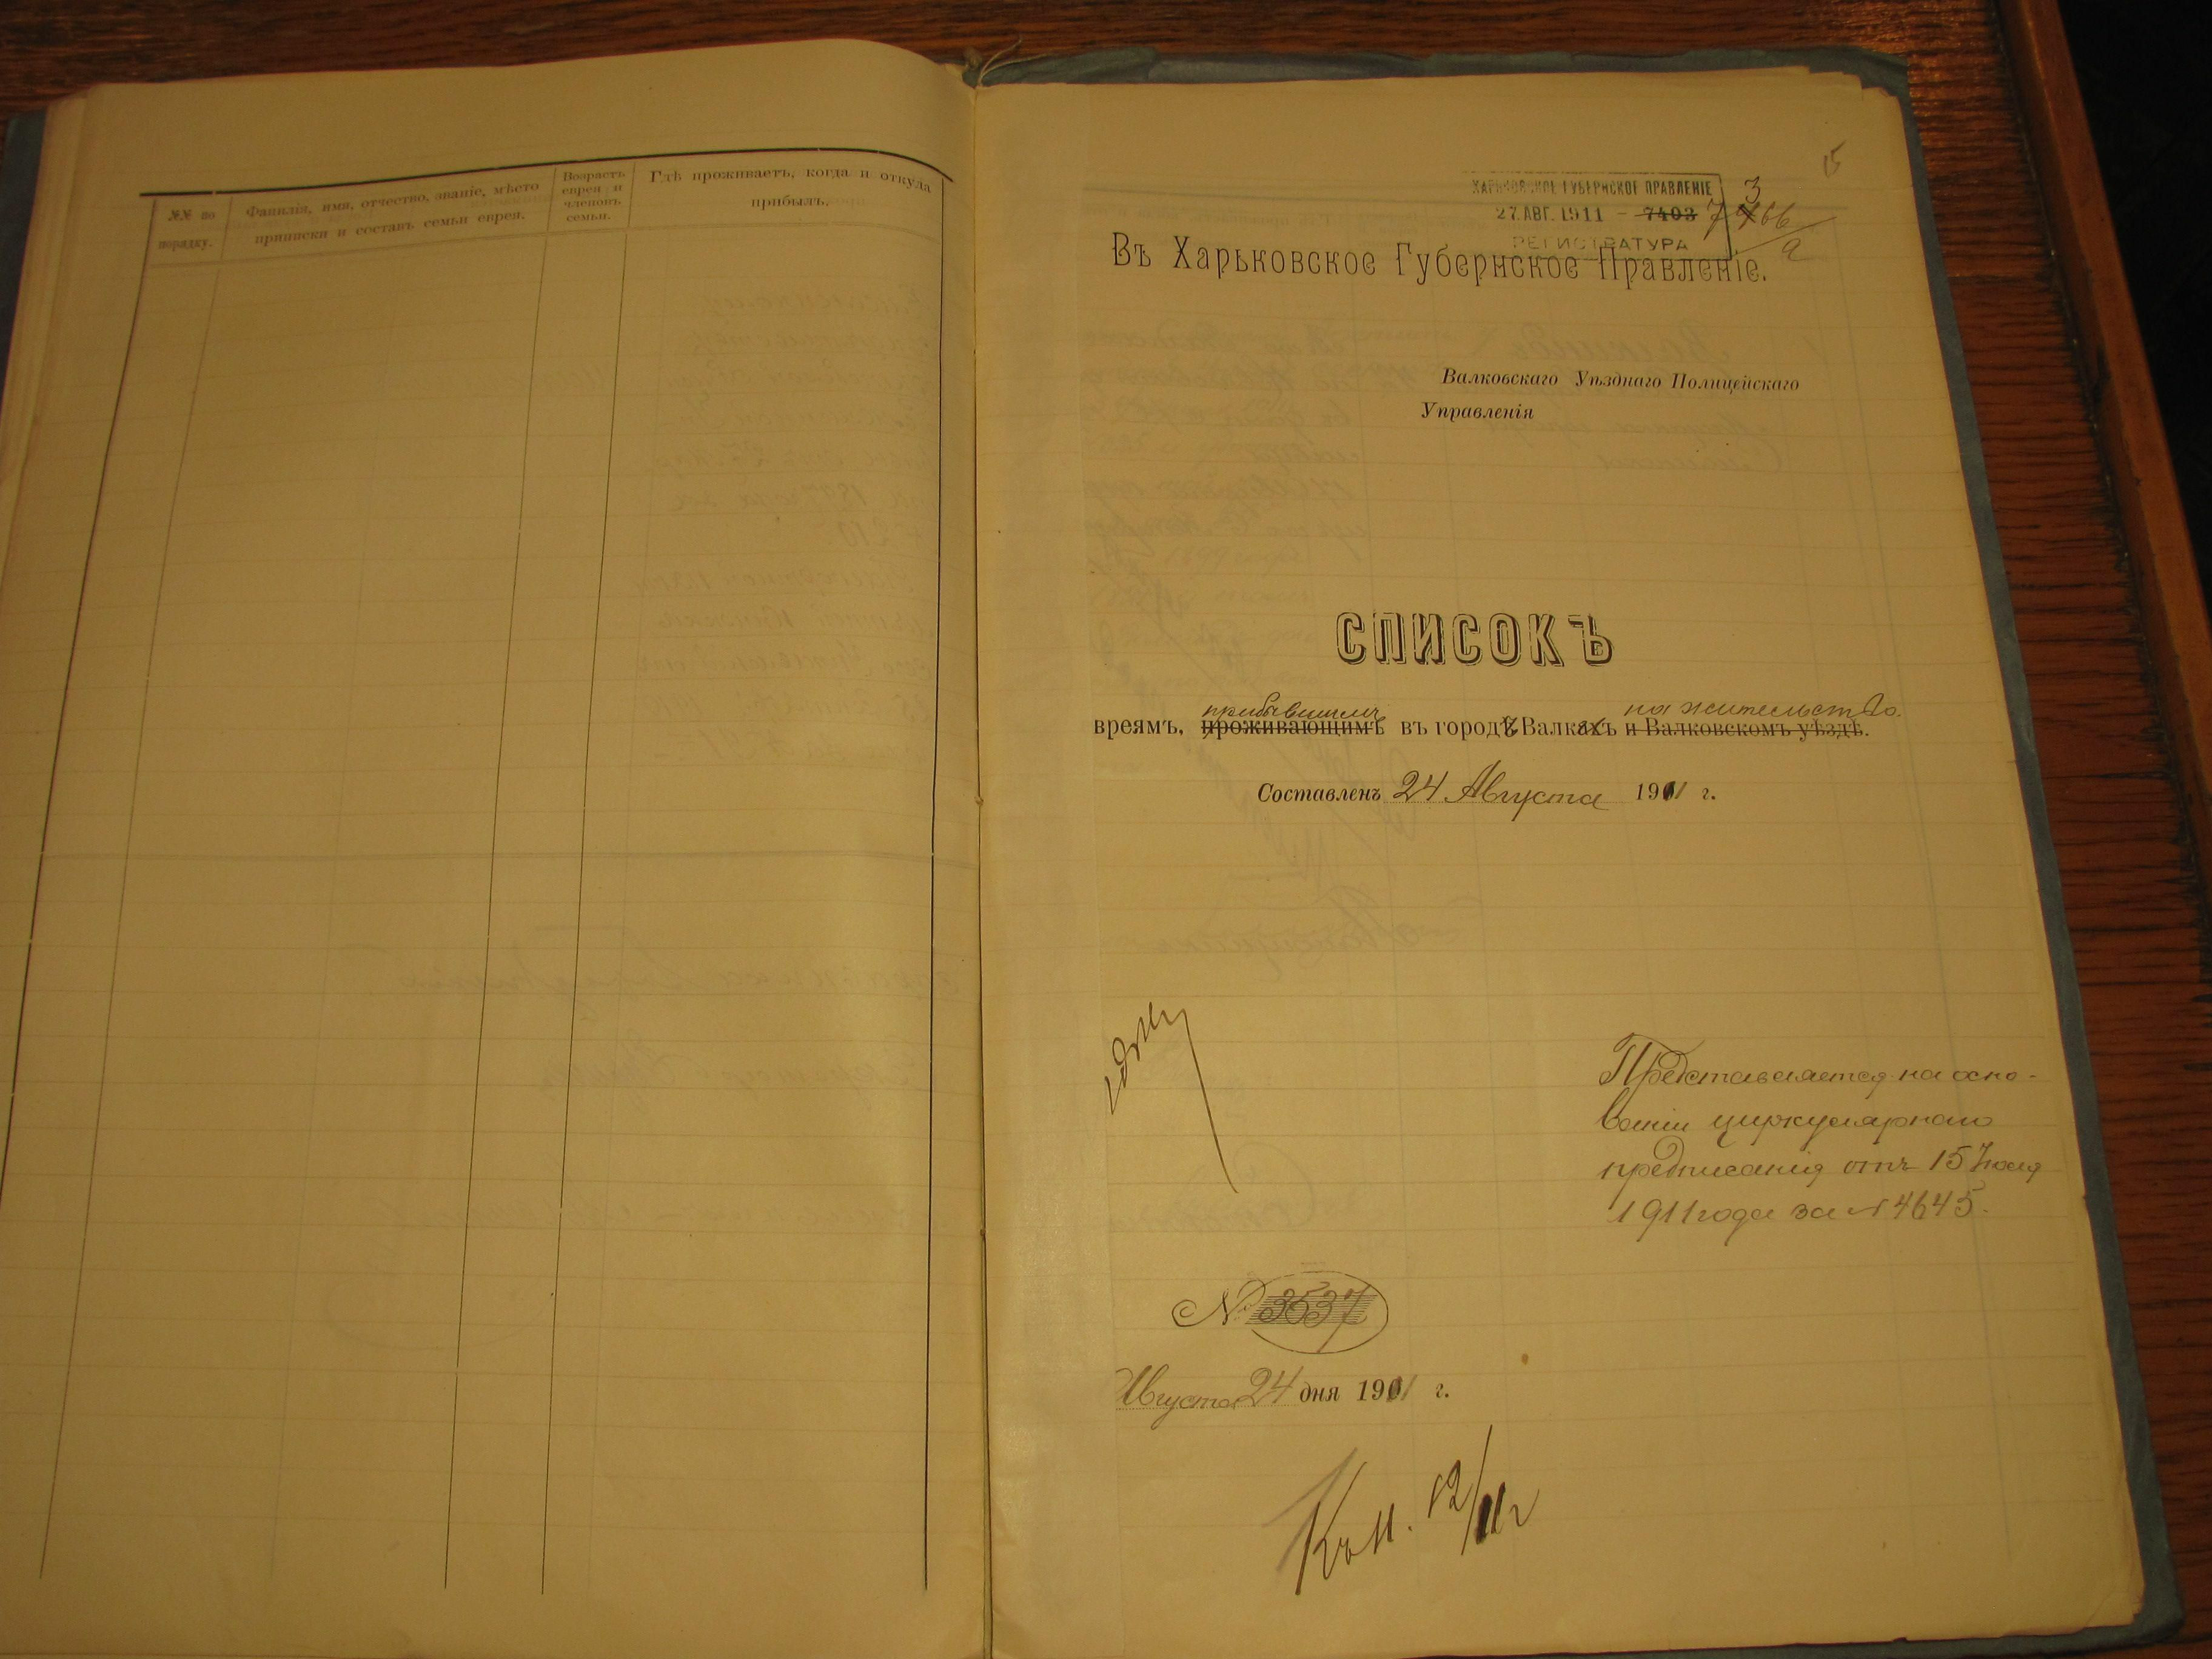 №№ по
порядку.
Фамилія, имя, отчество, званіе, мѣсто
приписки и составъ семьи еврея.
Возрастъ
еврея и
членовъ
семьи.
Гдѣ проживаетъ, когда и откуда
прибылъ.
ХАРЬКОВСКОЕ ГУБЕРНСКОЕ ПРАВЛЕНІЕ
27. АВГ. 1911 - 7403
РЕГИСТРАТУРА
Въ Харьковское Губернское Правленіе.
Валковскаго Уѣзднаго Полицейскаго
Управленія
СПИСОКЪ
прибывшимъ на жительство.
вреямъ, проживающимъ въ городѣ Валкахъ и Валковскомъ уѣздѣ.
Составленъ 24 Августа 1911 г.
Представляется на осно-
ваніи циркулярнаго
предписанія отъ 15 Іюля
1911 года за № 4645.
№ 3537
Августа 24 дня 1911 г.